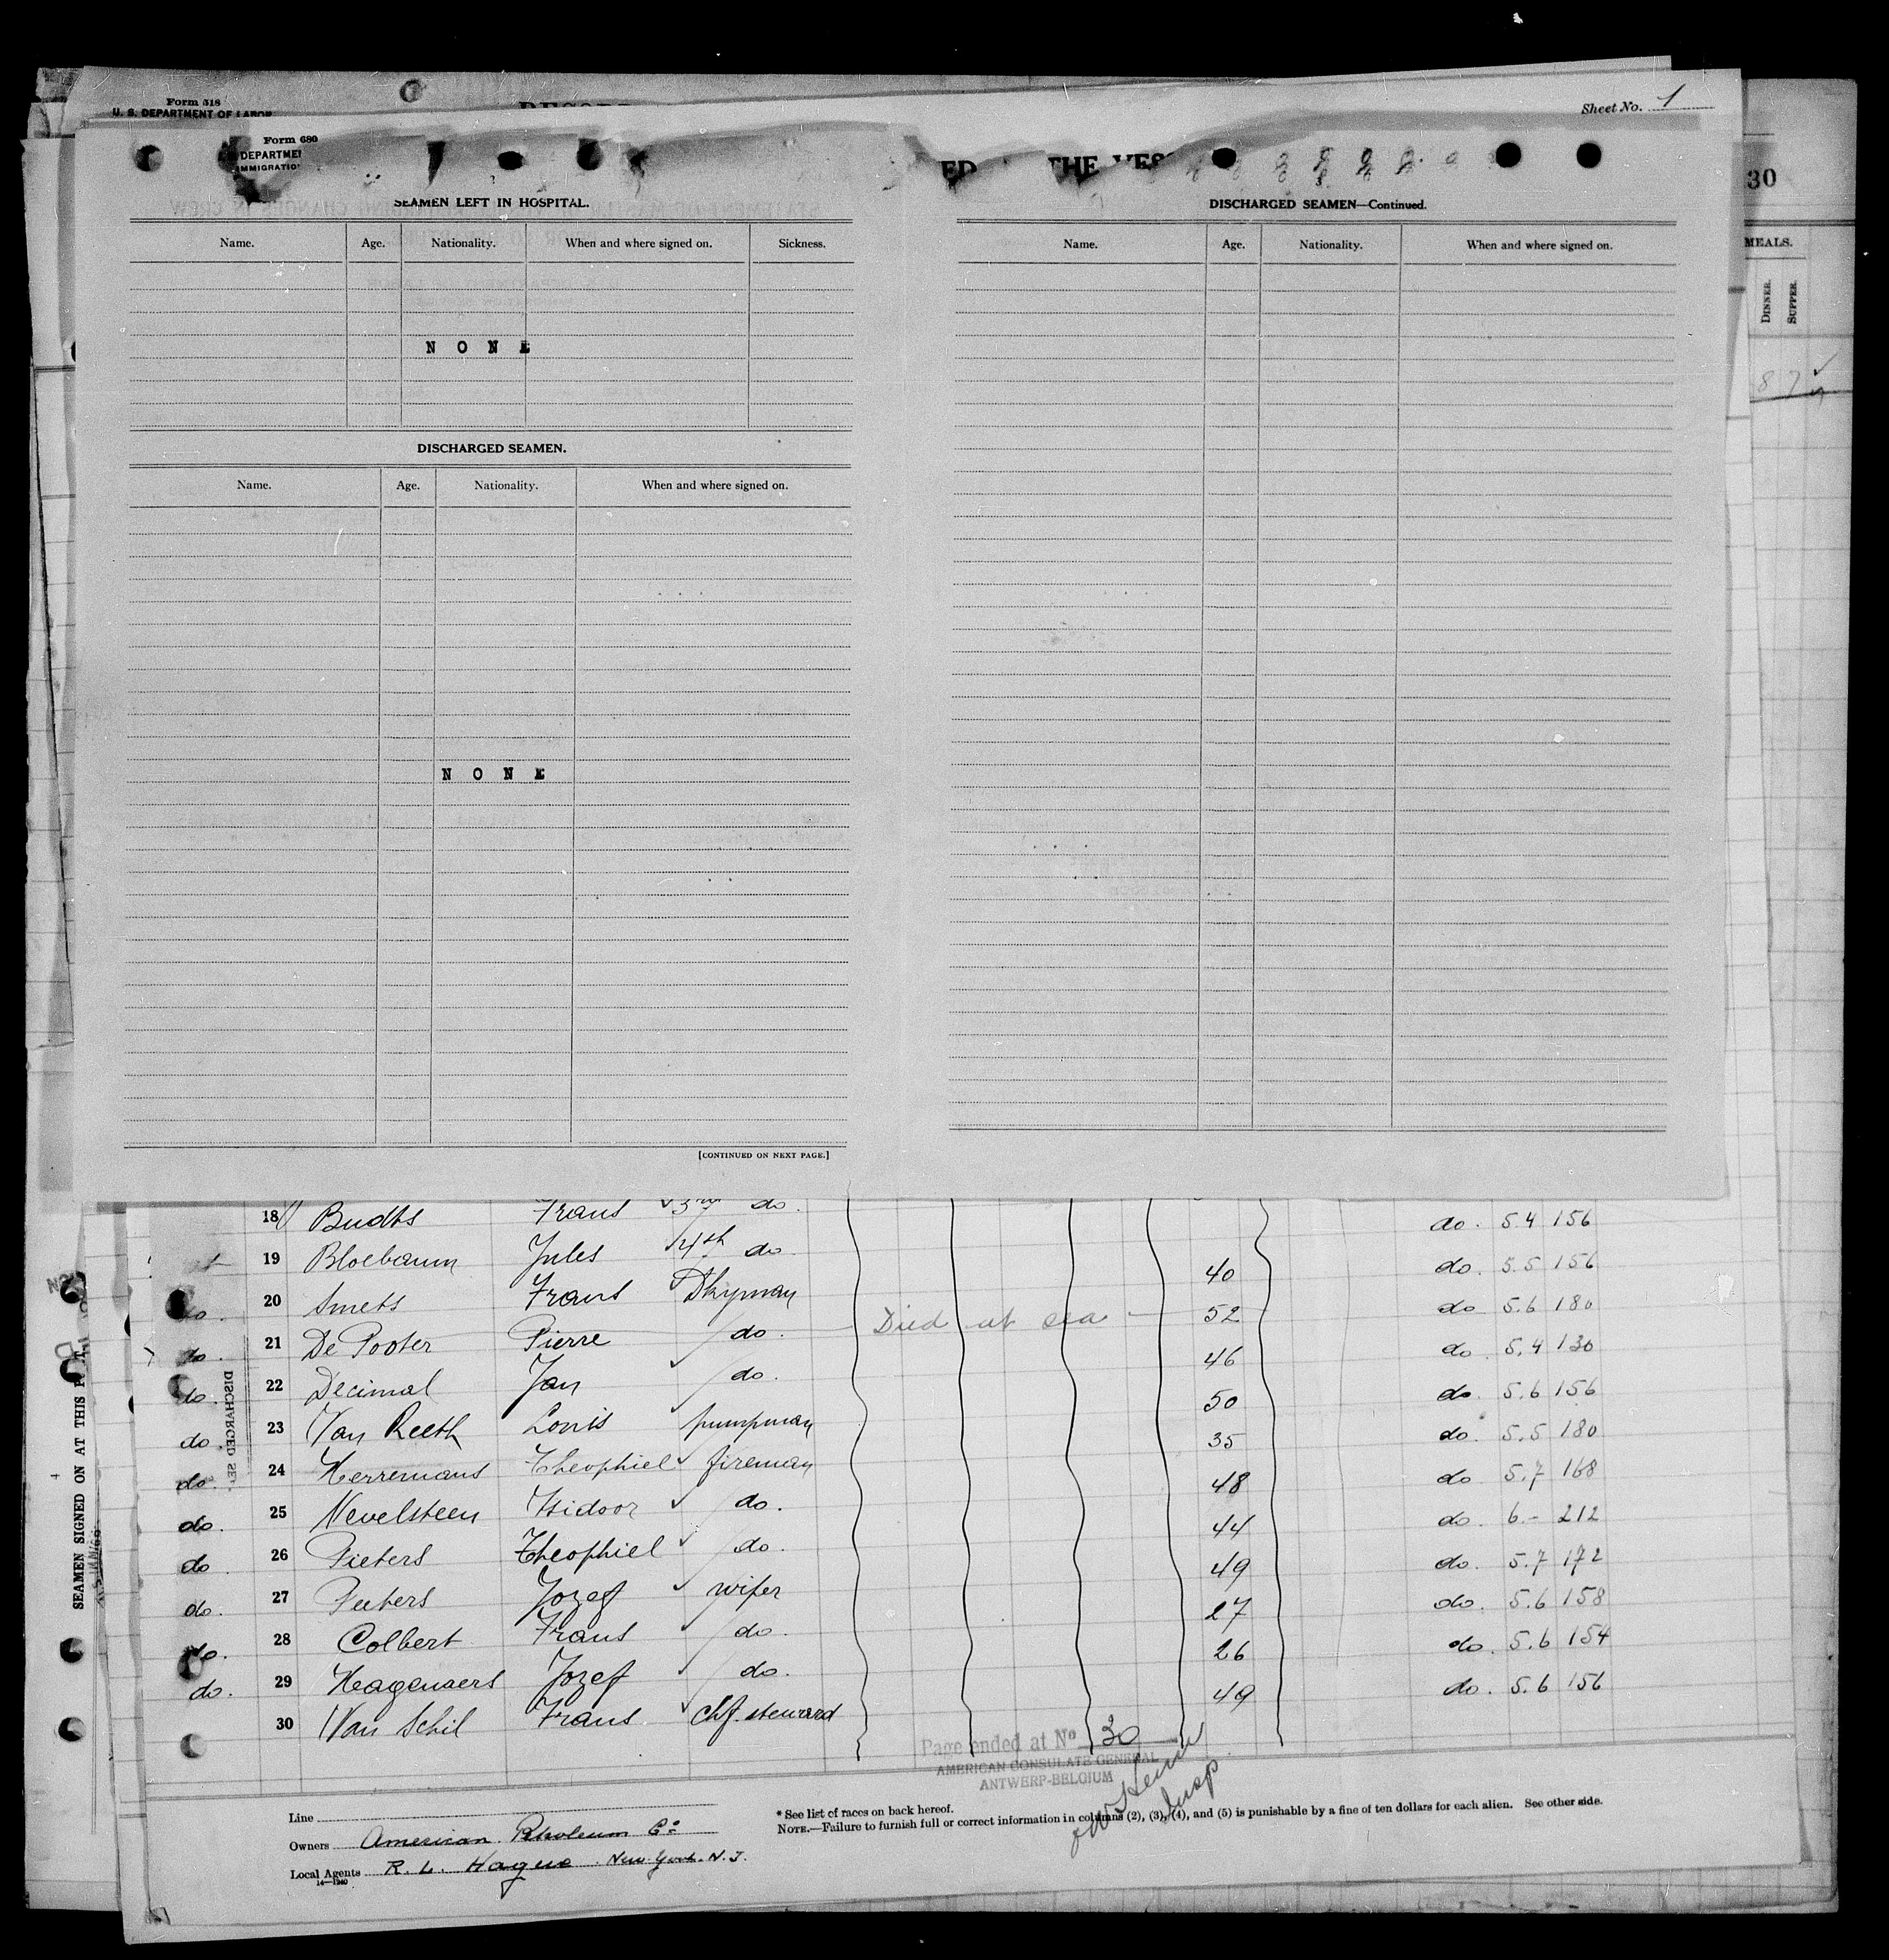 Form 518
U. S. DEPARTMENT OF LABOR
Sheet No. 1
Form 680
DEPARTME
IMMIGRATIO
ED THE VES
30
SEAMEN LEFT IN HOSPITAL.
Name. Age. Nationality. When and where signed on. Sickness.
NONE
DISCHARGED SEAMEN.
Name. Age. Nationality. When and where signed on.
NONE
[CONTINUED ON NEXT PAGE.]
DISCHARGED SEAMEN—Continued.
Name. Age. Nationality. When and where signed on.
MEALS.
DINNER.
SUPPER.
8 7
18 Budts Frans 3rd do. do. 5.4 156
19 Bloebaum Jules 4th do. 40 do. 5.5 156
do. 20 Smets Frans Dkyman 52 do. 5.6 180
do. 21 De Pooter Pierre do. Died at sea 46 do. 5.4 130
do. 22 Decimal Jan do. 50 do. 5.6 156
do. 23 Van Reeth Louis pumpman 35 do. 5.5 180
do. 24 Herremans Theophiel fireman 48 do 5.7 168
do. 25 Nevelsteen Isidoor do. 44 do. 6.- 212
do 26 Pieters Theophiel do. 49 do. 5.7 172
do. 27 Peeters Jozef wiper 27 do. 5.6 158
do. 28 Colbert Frans do. 26 do. 5.6 154
do. 29 Hagenaers Jozef do. 49 do. 5.6 156
30 Van Schil Frans chf. steward
SEAMEN SIGNED ON AT THIS P
DISCHARGED SE
Page ended at No 30
AMERICAN CONSULATE GENERAL
ANTWERP-BELGIUM
Insp
Line
Owners American Petroleum Co
Local Agents R. L. Hague New York. N. J.
14—1240
* See list of races on back hereof.
NOTE.—Failure to furnish full or correct information in columns (2), (3), (4), and (5) is punishable by a fine of ten dollars for each alien. See other side.